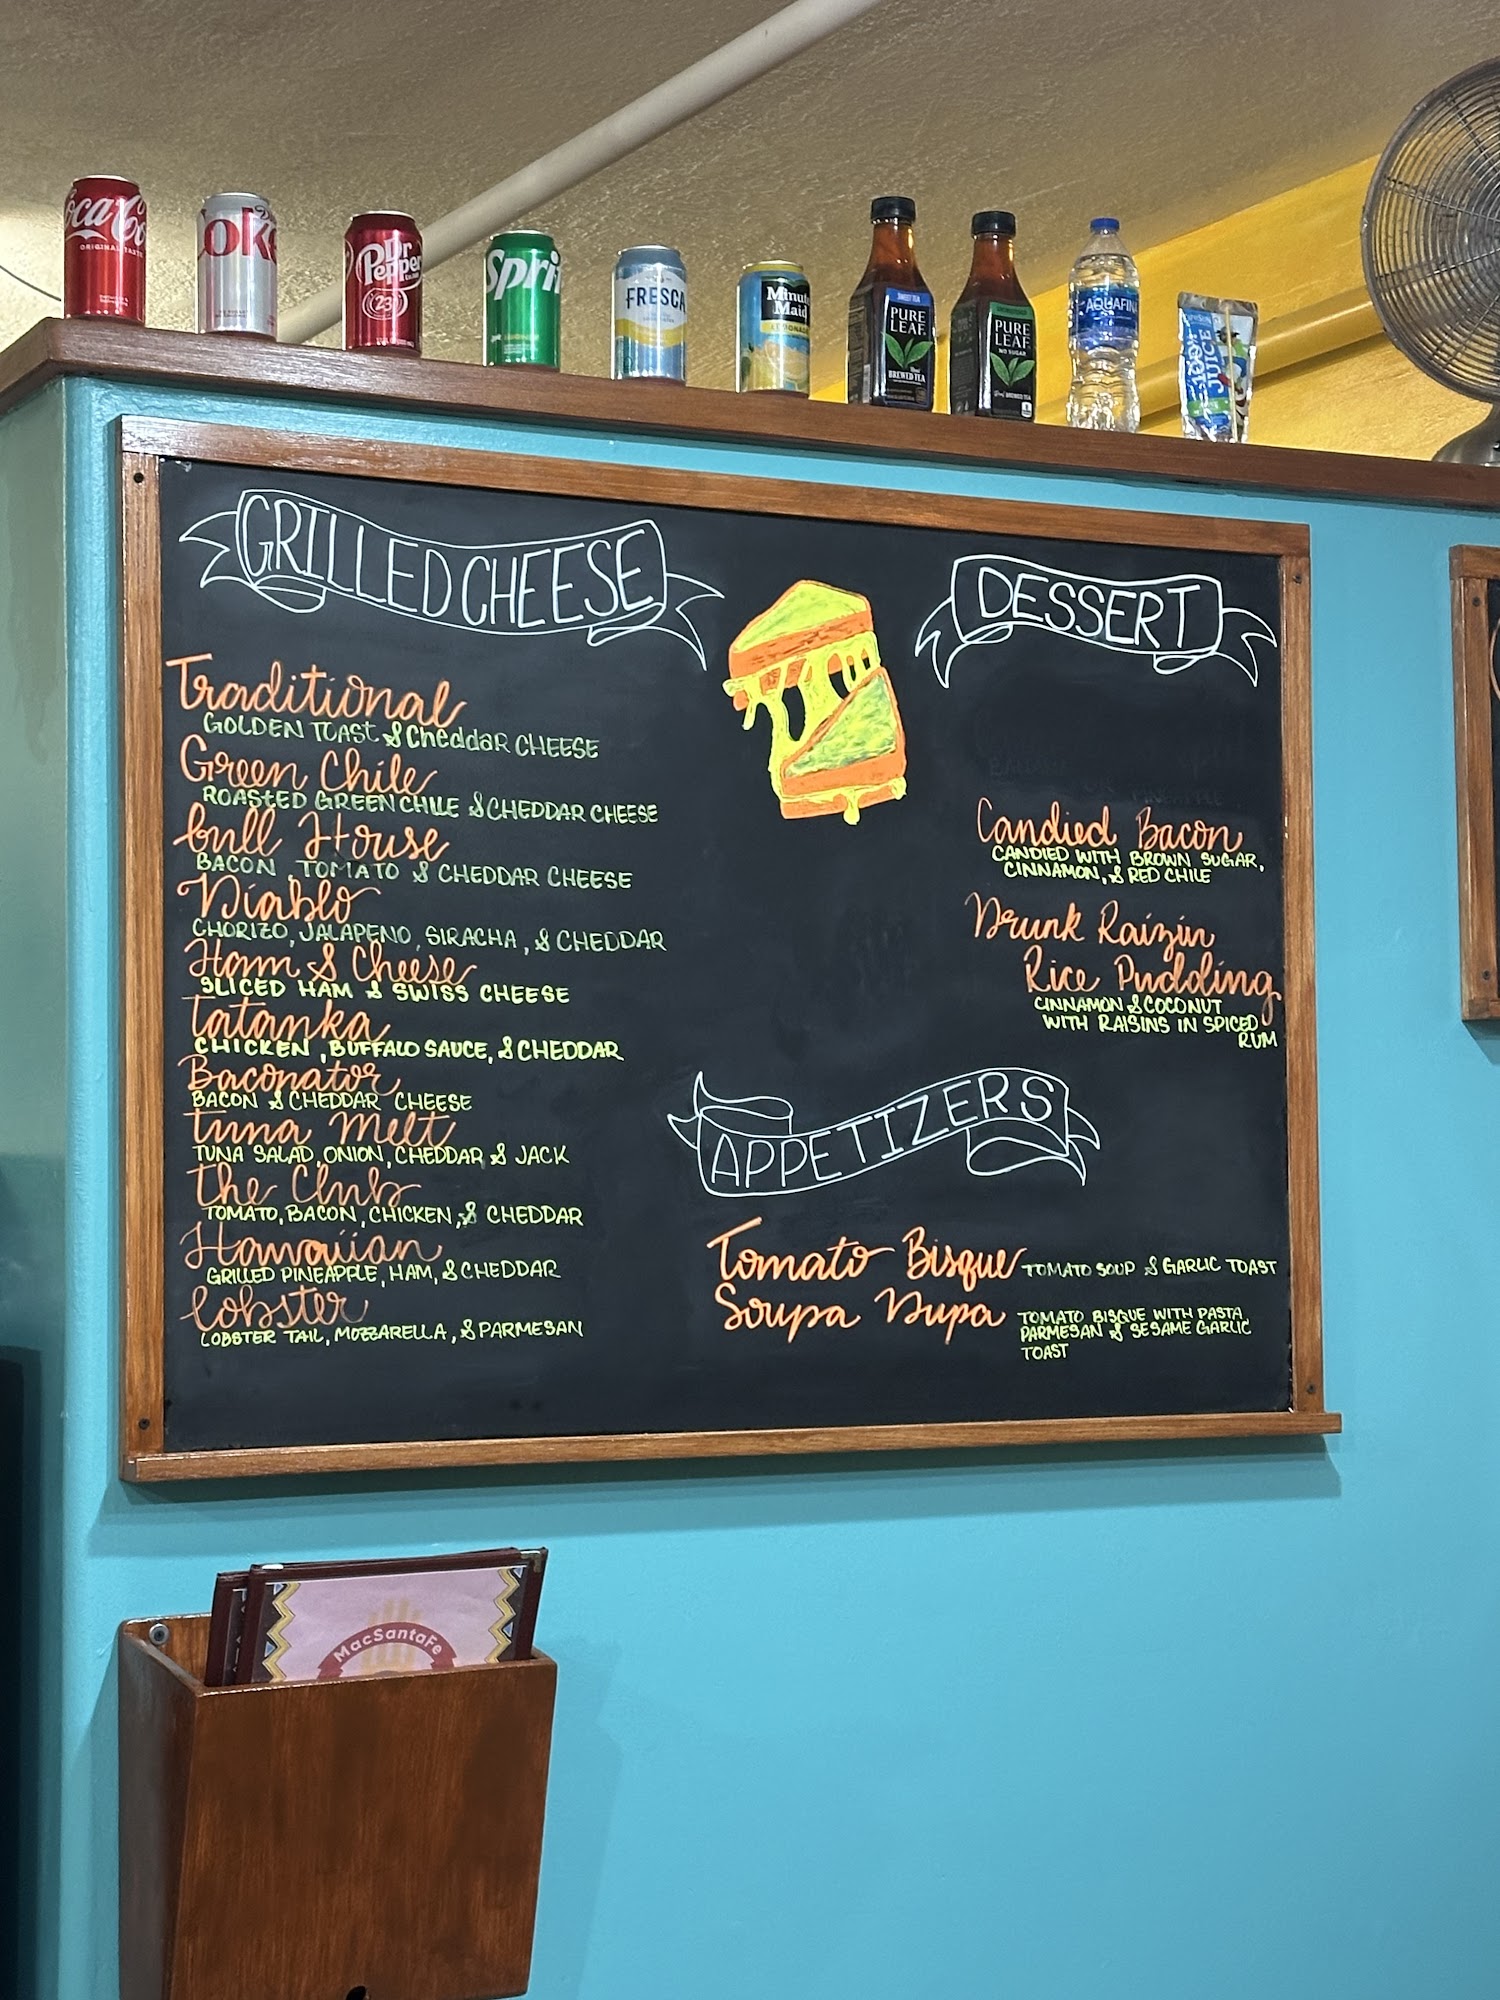 Coca-Cola
ORIGINAL TASTE
Coke
Dr
Pepper
23
Sprite
FRESCA
Minute
Maid
LEMONADE
SWEET TEA
PURE
LEAF
Real
BREWED TEA
PURE
LEAF
NO SUGAR
BREWED TEA
AQUAFINA
100%
JUICE
GRILLED CHEESE
Traditional
GOLDEN TOAST & Cheddar CHEESE
Green Chile
ROASTED GREEN CHILE & CHEDDAR CHEESE
bull House
BACON, TOMATO & CHEDDAR CHEESE
Diablo
CHORIZO, JALAPENO, SIRACHA, & CHEDDAR
Ham & Cheese
SLICED HAM & SWISS CHEESE
Tatanka
CHICKEN, BUFFALO SAUCE, & CHEDDAR
Baconator
BACON & CHEDDAR CHEESE
Tuna Melt
TUNA SALAD, ONION, CHEDDAR & JACK
The Club
TOMATO, BACON, CHICKEN, & CHEDDAR
Hawaiian
GRILLED PINEAPPLE, HAM, & CHEDDAR
lobster
LOBSTER TAIL, MOZZARELLA, & PARMESAN
DESSERT
Candied Bacon
CANDIED WITH BROWN SUGAR,
CINNAMON, & RED CHILE
Drunk Raizin
Rice Pudding
CINNAMON & COCONUT
WITH RAISINS IN SPICED
RUM
APPETIZERS
Tomato Bisque TOMATO SOUP & GARLIC TOAST
Soupa Dupa TOMATO BISQUE WITH PASTA,
PARMESAN & SESAME GARLIC
TOAST
MacSantaFe